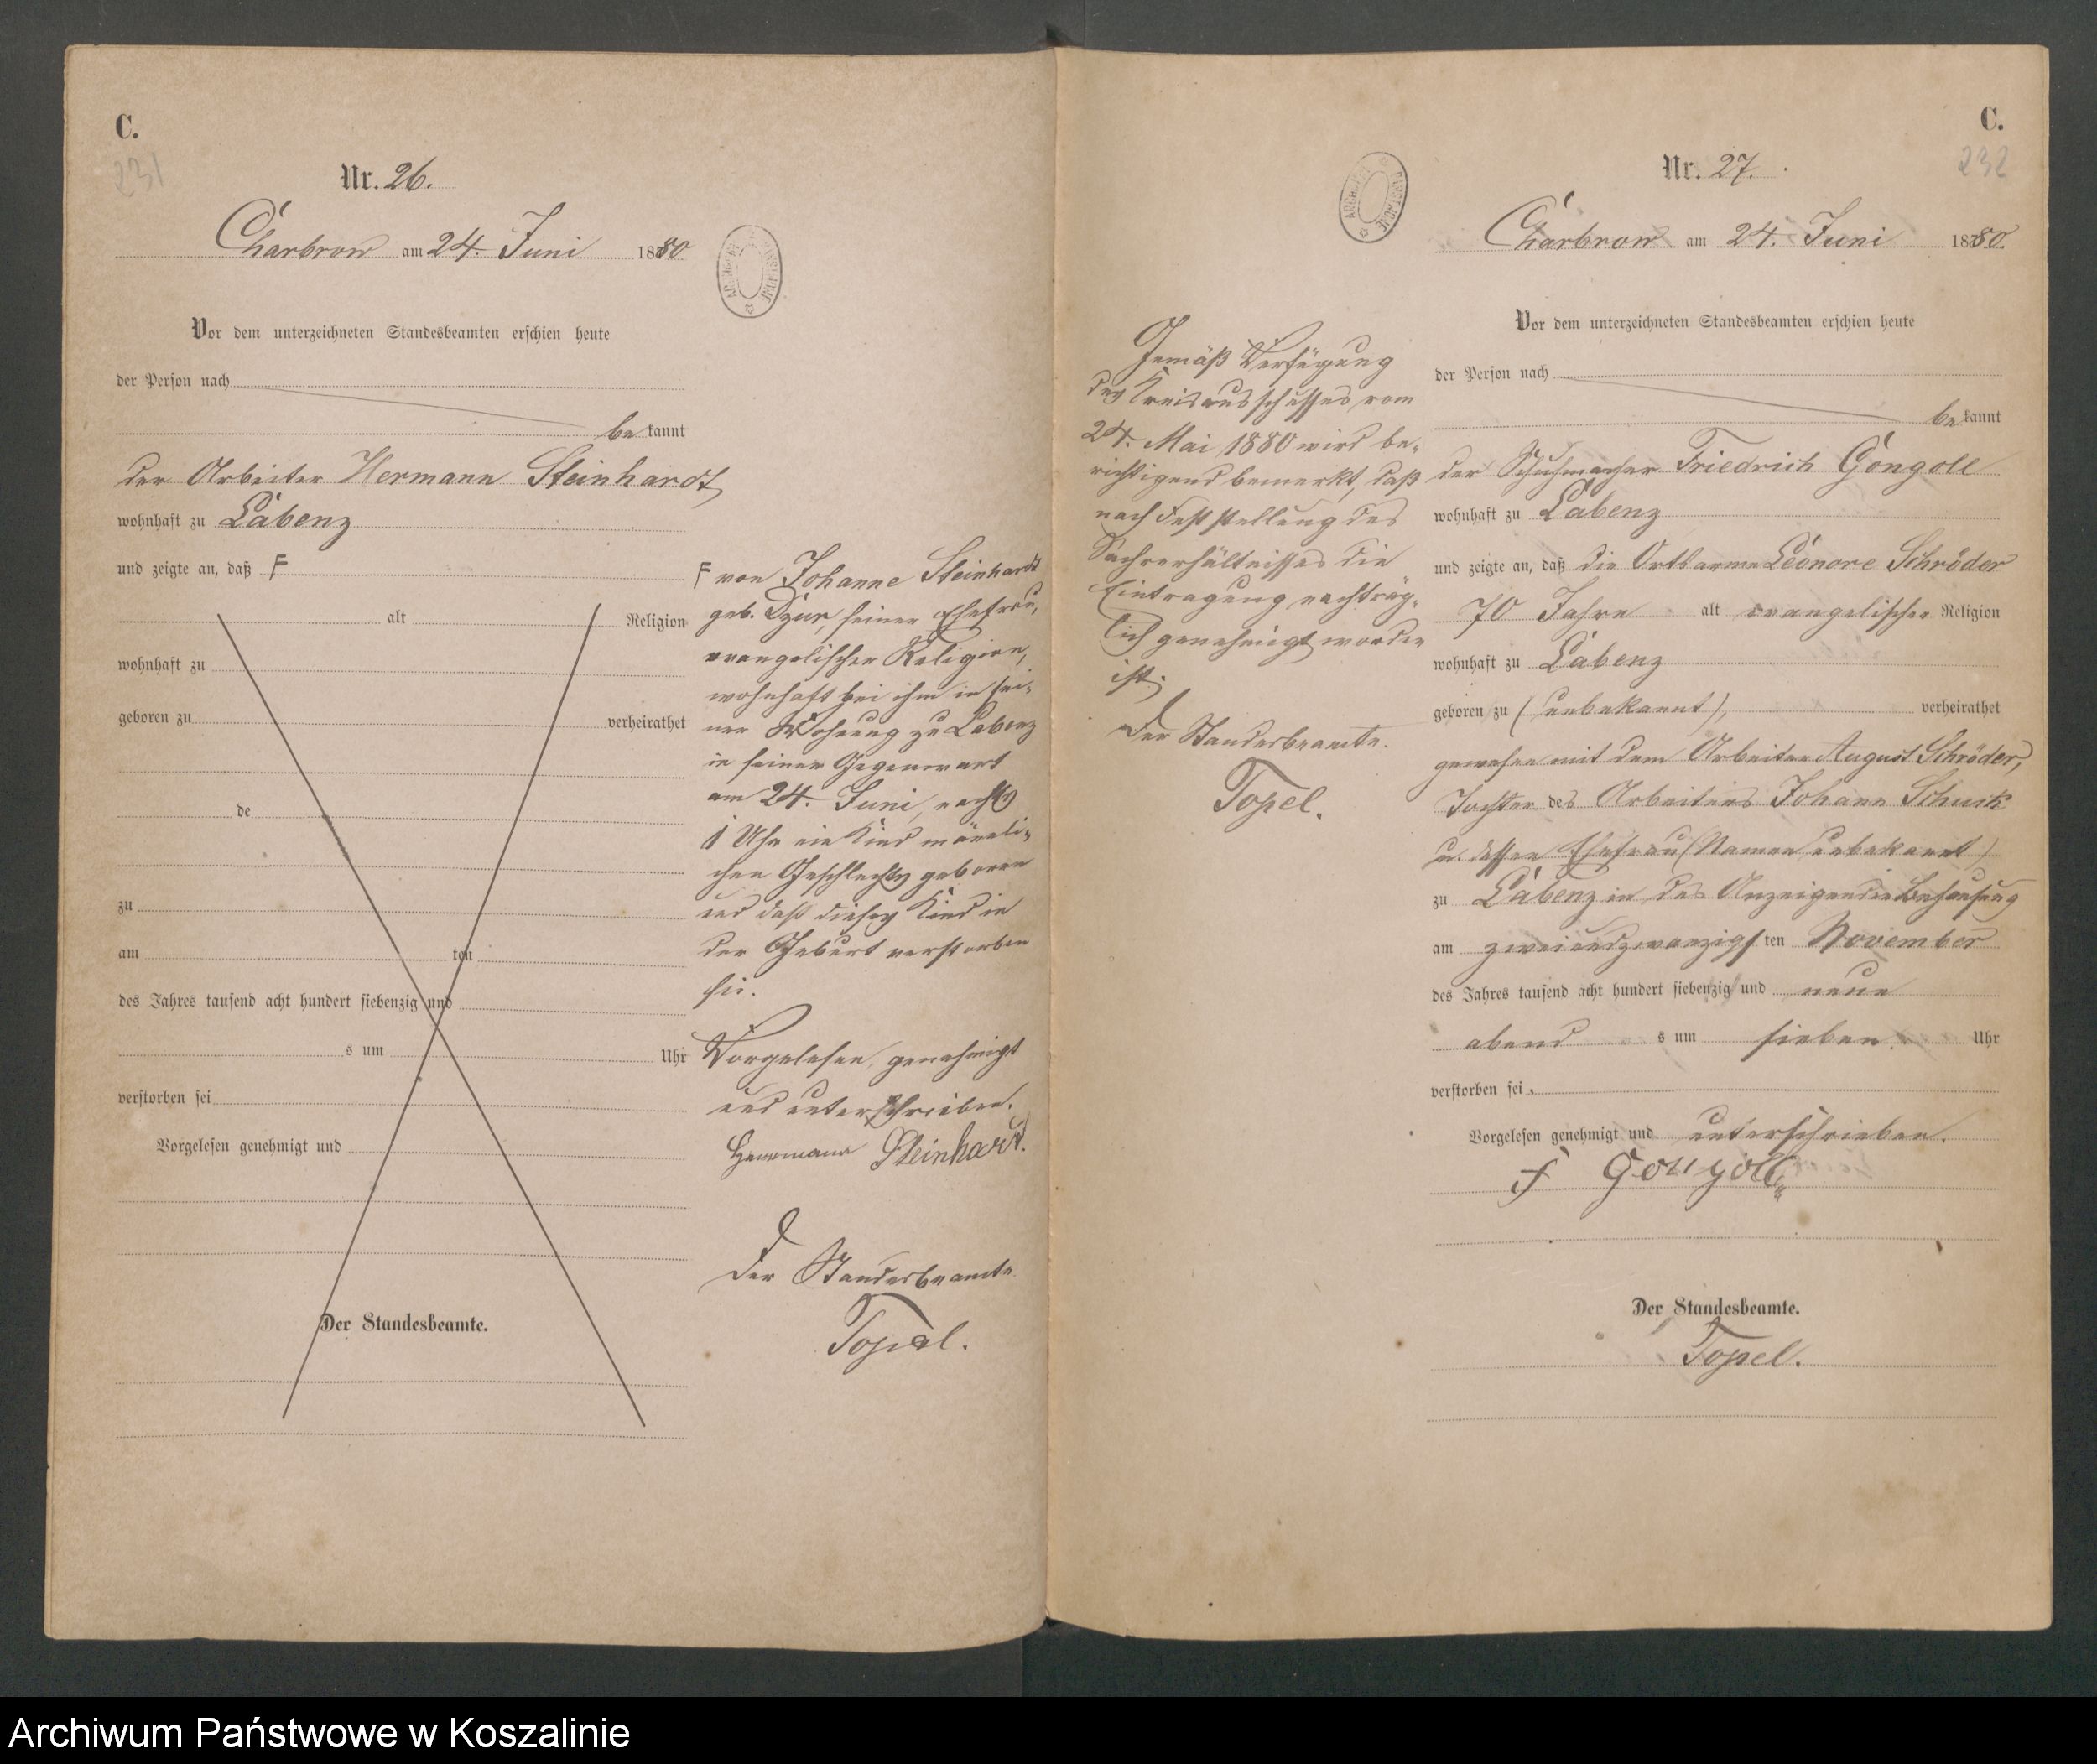 C.
231
Nr. 26.
Charbrow am 24. Juni 1880
Vor dem unterzeichneten Standesbeamten erschien heute
der Person nach
be kannt
der Arbeiter Hermann Steinhardt
wohnhaft zu Labenz
und zeigte an, daß F
alt Religion
wohnhaft zu
geboren zu verheirathet
de
zu
am ten
des Jahres tausend acht hundert siebenzig und
s um Uhr
verstorben sei
Vorgelesen genehmigt und
Der Standesbeamte.
F von Johanne Steinhardt
geb. Dzur, seiner Ehefrau,
evangelischer Religion,
wohnhaft bei ihm in sei-
ner Wohnung zu Labenz
in seiner Gegenwart
am 24. Juni, nachts
1 Uhr ein Kind männli-
chen Geschlechts geboren
und daß dieses Kind in
der Geburt verstorben
sei.
Vorgelesen, genehmigt
und unterschrieben.
Herrmann Steinhardt.
Der Standesbeamte.
Topel.
C.
232
Nr. 27.
Charbrow am 24. Juni 1880.
Vor dem unterzeichneten Standesbeamten erschien heute
der Person nach
be kannt
der Schuhmacher Friedrich Gongoll
wohnhaft zu Labenz
und zeigte an, daß die Ortsarme Leonore Schröder
70 Jahre alt evangelischer Religion
wohnhaft zu Labenz
geboren zu (unbekannt), verheirathet
gewesen mit dem Arbeiter August Schröder,
Tochter des Arbeiters Johann
u. dessen Ehefrau (Namen unbekannt)
zu Labenz in des Anzeigenden Behausung
am zweiundzwanzigs ten November
des Jahres tausend acht hundert siebenzig und neun
abend s um sieben Uhr
verstorben sei.
Vorgelesen genehmigt und unterschrieben.
F Gongoll
Der Standesbeamte.
Topel.
Gemäß Verfügung
des Kreisausschusses vom
24. Mai 1880 wird be-
richtigend bemerkt, daß
nach Feststellung des
Sachverhältnisses die
Eintragung nachträg-
lich genehmigt worden
ist.
Der Standesbeamte.
Topel.
Archiwum Państwowe w Koszalinie